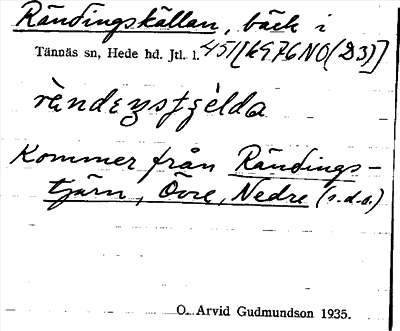 Rändingskällan, bäck i
Tännäs sn, Hede hd. Jtl. l. 451[6976NO(D3)]
Kommer från Rändings-
tjärn, Övre, Nedre (s.d.o.)
O. Arvid Gudmundson 1935.